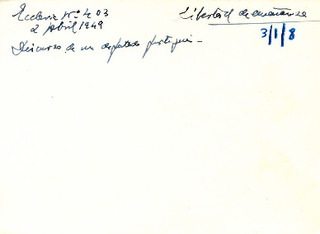 Ecclesia Nº 403
2 Abril 1949
Libertad de enseñanza
3/1/8
Discurso de un diputado portugués.-